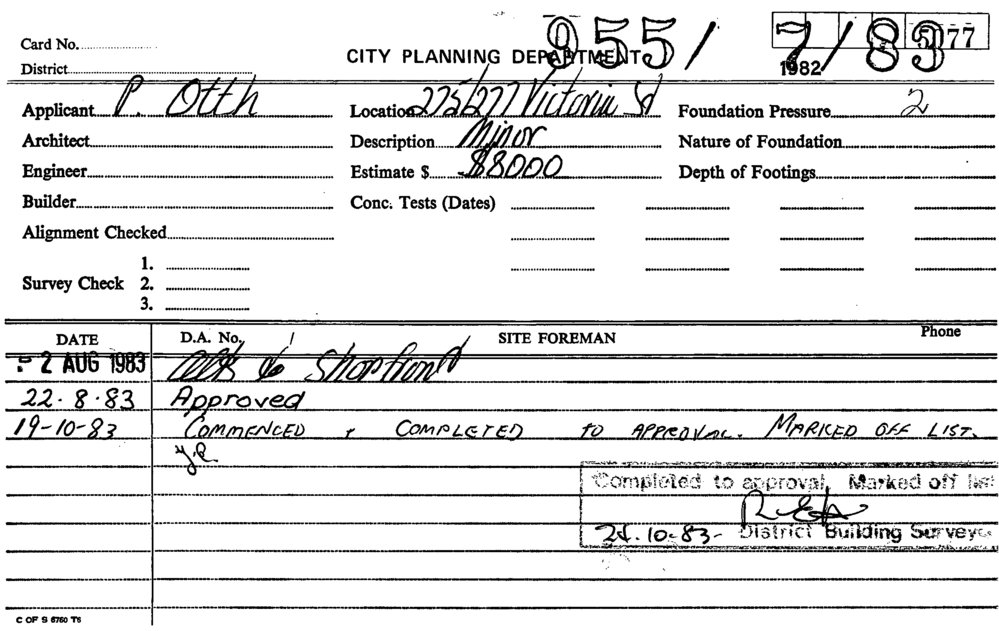 Card No.
CITY PLANNING DEPARTMENT
955/7/83
5777
1982
District
Applicant P. Otth
Location 275/277 Victoria St
Foundation Pressure 2
Architect
Description Minor
Nature of Foundation
Engineer
Estimate $ $8000
Depth of Footings
Builder
Conc. Tests (Dates)
Alignment Checked
Survey Check 1.
2.
3.
DATE D.A. No. SITE FOREMAN Phone
- 2 AUG 1983 Alts to Shopfront
22.8.83 Approved
19-10-83 COMMENCED + COMPLETED TO APPROVAL. MARKED OFF LIST.
Completed to approval, Marked off list
24.10.83- District Building Surveyo
C OF S 6760 T6